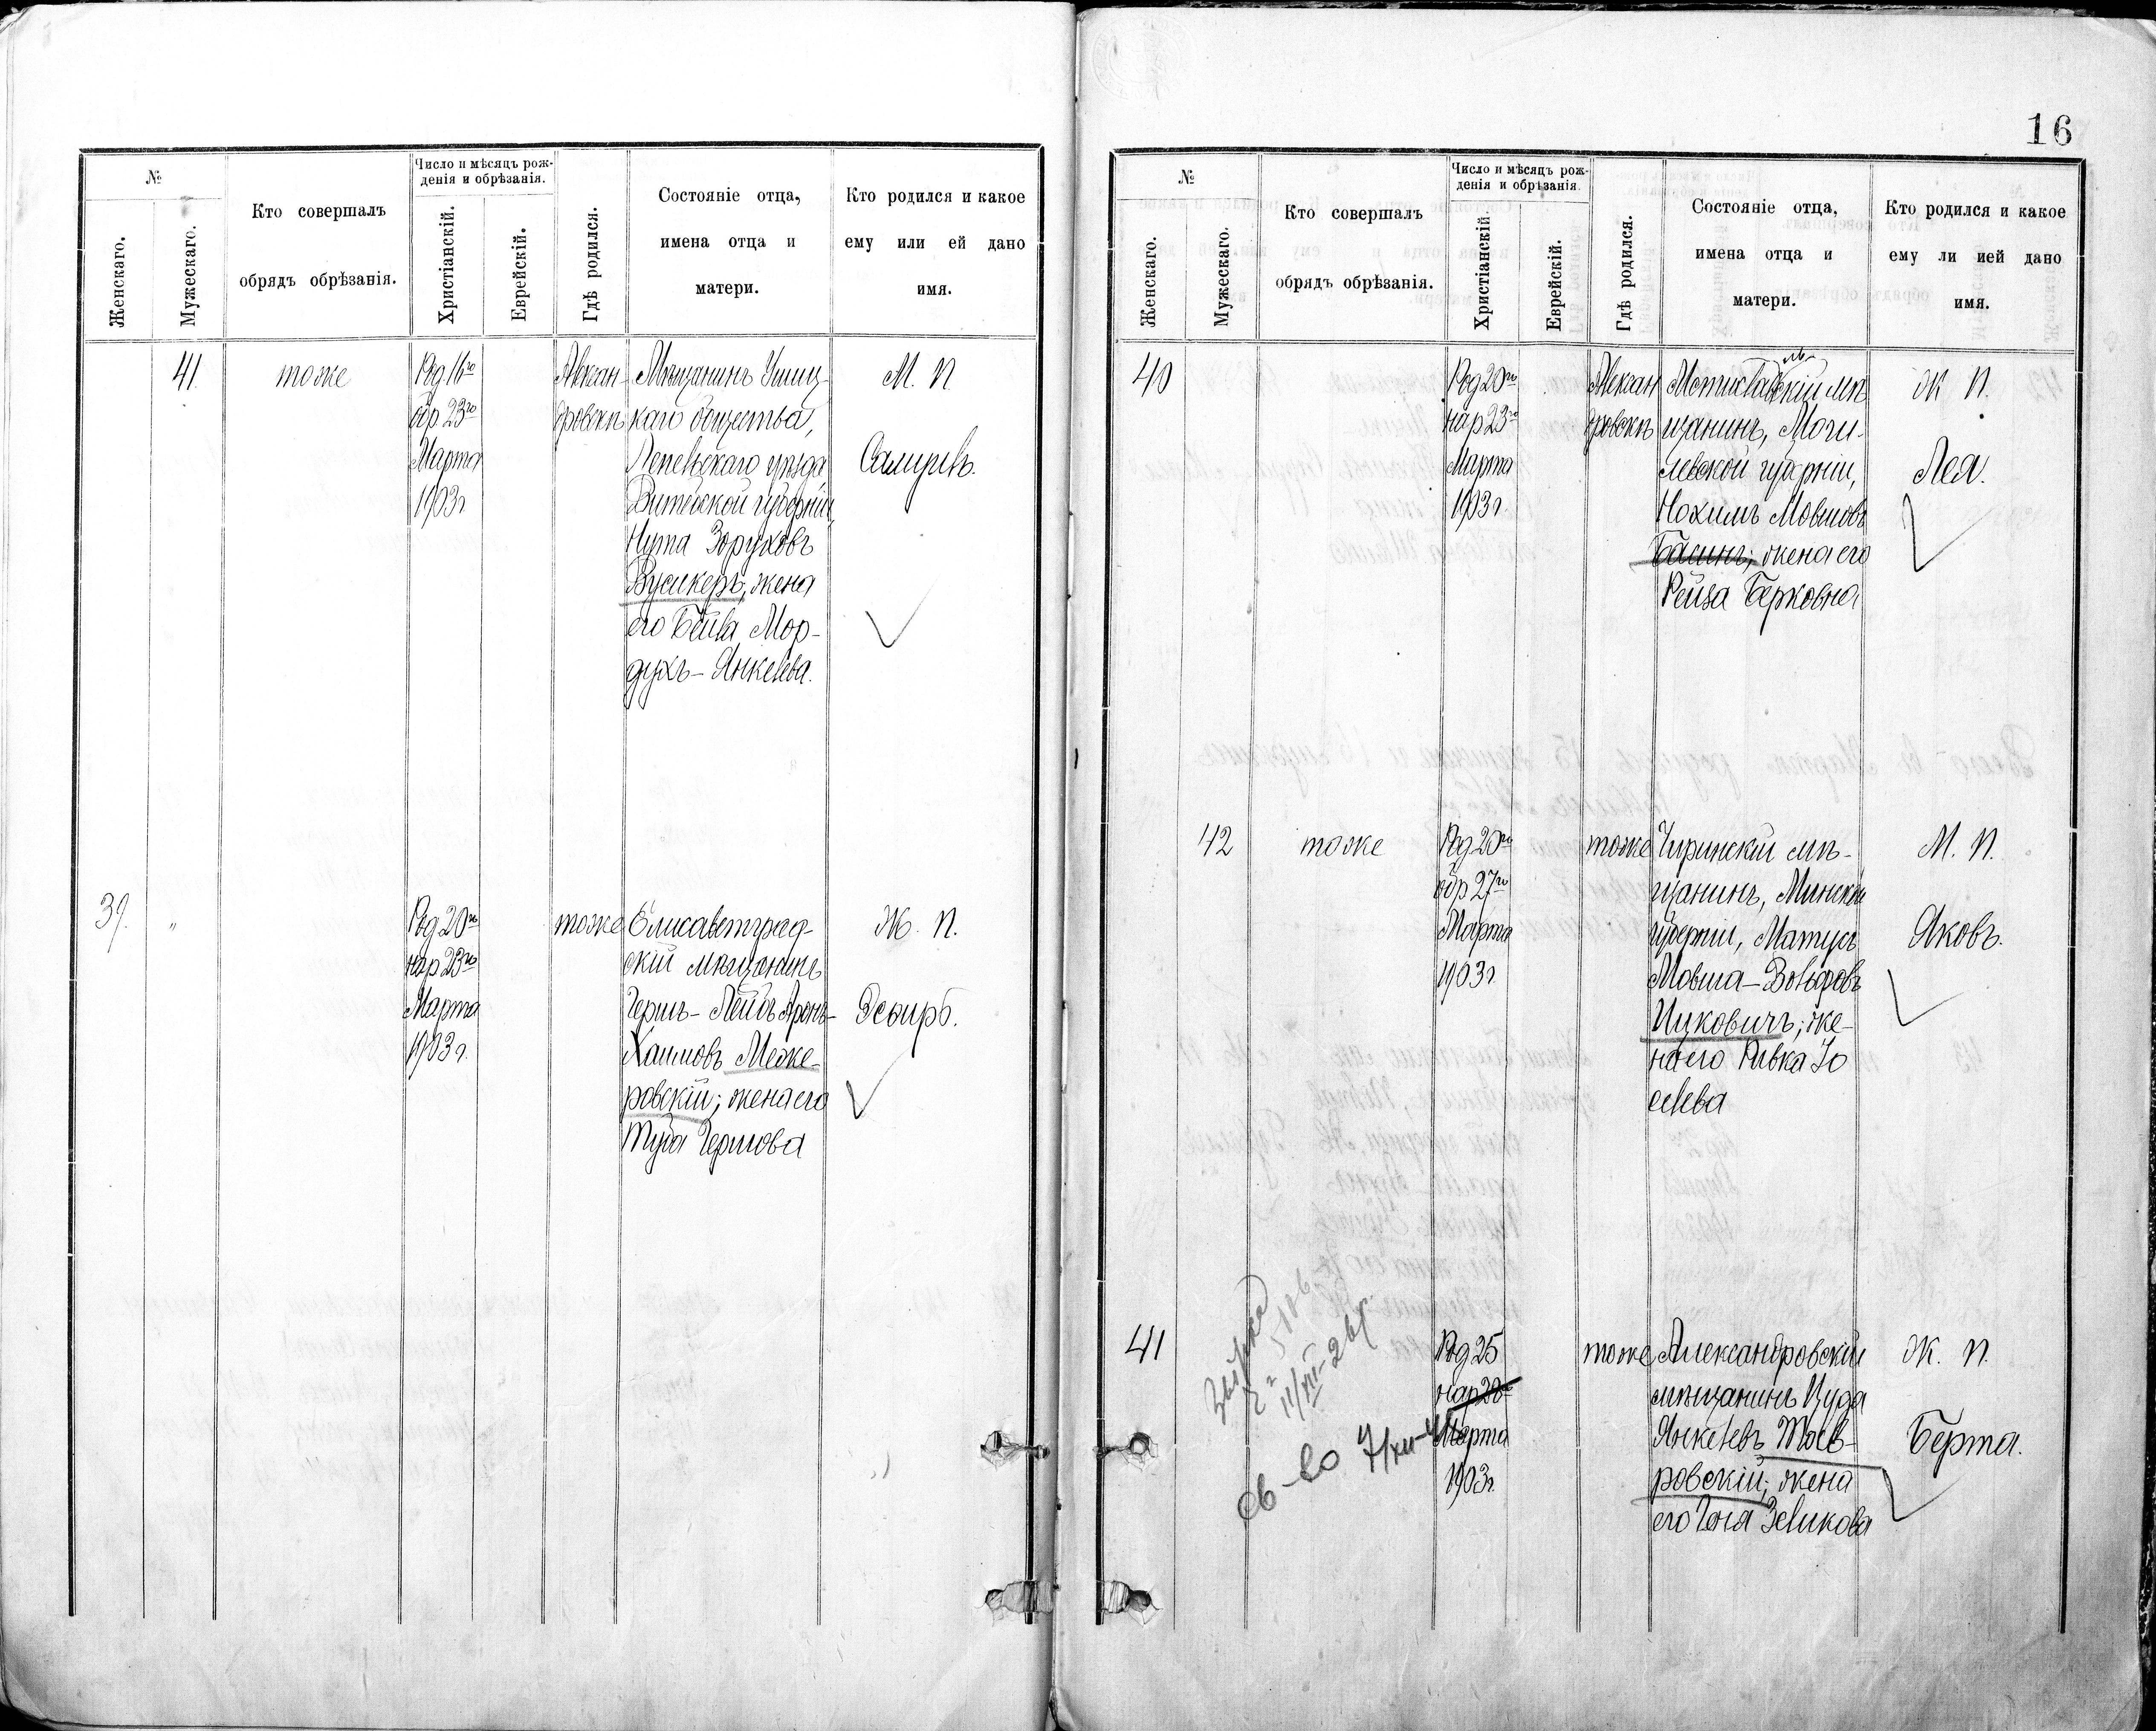 №
Женскаго.
Мужескаго.
Кто совершалъ
обрядъ обрѣзанія.
Число и мѣсяцъ рож-
денія и обрѣзанія.
Христіанскій.
Еврейскій.
Гдѣ родился.
Состояніе отца,
имена отца и
матери.
Кто родился и какое
ему или ей дано
имя.
41
тоже
Род 16го
обр 23го
Марта
1903г
Алексан
дровскъ
Мѣщанинъ Ушиц-
каго общества,
Лепельскаго уѣзда
Витебской губерніи,
Нута Зоруховъ
жена
его Бейла Мор-
духъ-Янкелева.
М. П.
39.
"
Род 20го
нар 23го
Марта
1903 г.
тоже
Елисаветград-
скій мѣщанинъ
Гершъ-Лейбъ Аронъ-
Хаимовъ Меже-
ровскій; жена его
Гершова
Ж. П.
Эсѳирь.
16
№
Женскаго.
Мужескаго.
Кто совершалъ
обрядъ обрѣзанія.
Число и мѣсяцъ рож-
денія и обрѣзанія.
Христіанскій.
Еврейскій.
Гдѣ родился.
Состояніе отца,
имена отца и
матери.
Кто родился и какое
ему ли ией дано
имя.
40
Род 20го
нар 23го
Марта
1903 г.
Алексан
дровскъ
Мстиславльскій мѣ
щанинъ, Моги-
левской губерніи,
Нохимъ Мовшовъ
Басинъ; жена его
Рейза Берковна
Ж П.
Лея.
42
тоже
Род 20го
обр 27го
Марта
1903 г
тоже
мѣ-
щанинъ, Минской
губерніи, Матусъ
Мовша-Вольфовъ
Ицковичъ; же-
на его Ривка Іо
селева
М. П.
Яковъ.
41
11/XII-26г.
св-во 7/XII-
Род 25
нар 28го
Марта
1903г.
тоже
Александровскій
мѣщанинъ Іуда
Янкелевъ
ровскій; жена
его Геня Зеликова
Ж. П.
Берта.